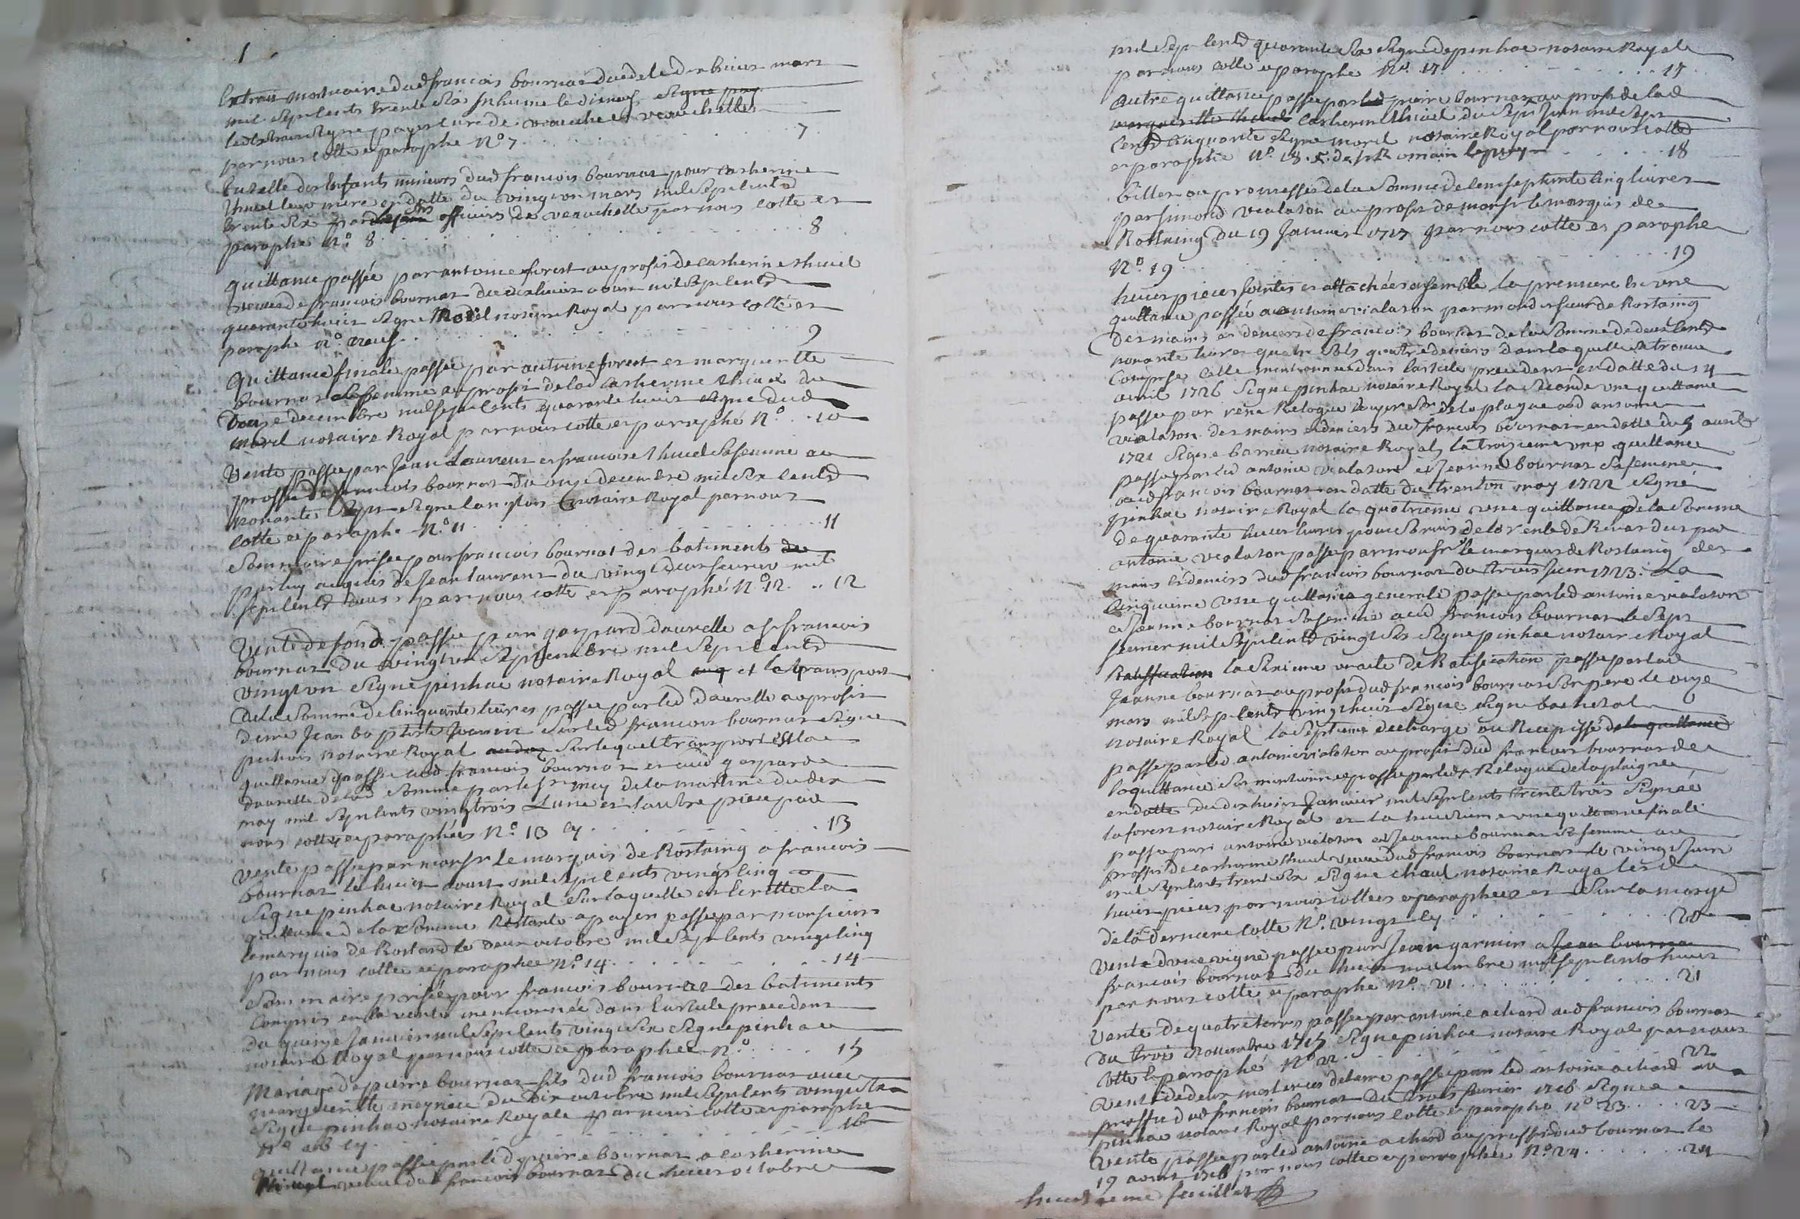 1
Extrait mortuaire dud françois bournat du dele dix huit mars
mil sept cents trente six Inhumé le dixneuf signe par
par nous cotté et paraphé N.o 7 . . . 7
tutelle des Enfants mineurs dud françois bournat pour catherine
thuel leur mere en datte du vingt un mars mil sept cents
trente six par officiers de veauchette par nous cotté et
paraphé N.o 8 . . . 8
quittance passée par antoine forest au profit de catherine thuel
veuve de françois bournat du dixhuit mil sept cents
quarante huit signe Morel notaire Royal par nous cotté et
paraphe N.o neuf . . . 9
quittance finale passée par antoine forest et margueritte
bournat sa femme au profit de lad catherine thuel du
douze decembre mil sept cents quarante huit signe dud
morel notaire Royal par nous cotté et paraphé N.o . . 10
Vente passée par Jean Laurent et francoise thuel sa femme au
proffit de francois bournat du onze decembre mil six cents
nonante sept signe Langlois notaire Royal par nous
cotté et paraphé N.o 11 . . . 11
Sommaire prisée pour francois bournat des batiments de
par luy acquis de Jean Laurent du vingt deux fevrier mil
sept cents deux par nous cotté et paraphé N.o 12 . . 12
Vente de fond passée par gaspard daurelle a sr francois
bournat du vingt un septembre mil sept cents
vingt un signe pinhac notaire Royal et le transport
de la somme de cinquante livres passé par led daurelle au profit
de me Jean baptiste sur led francois bournat signe
notaire Royal sur lequel transport est la
quittance passée aud francois bournat et aud gaspard
daurelle de lad somme par de la martine du dix
may mil sept cents vingt trois L'une et l'autre piece par
nous cottés et paraphées N.o 13 cy . . . 13
vente passée par monsr le marquis de Rostaing a francois
bournat le huit aout mil sept cents vingt cinq
signe pinhac notaire Royal sur laquelle est Ecritte la
quittance de la somme Restante a payer passée par monsieur
le marquis de Rostaing le deux octobre mil sept cents vingt cinq
par nous cotté et paraphée N.o 14 . . . 14
Sommaire prisée pour francois bournat des batiments
Compris en la vente mentionnée dans l'article precedent
du quinze Janvier mil sept cents vingt six signe pinhac
notaire Royal par nous cotté et paraphée N.o . . . 15
Mariage de pierre bournat fils dud francois bournat avec
margueritte meynieu du dix octobre mil sept cents vingt six
signe pinhac notaire Royale par nous cotté et paraphe
N.o 16 cy . . . 16
quittance passée par led pierre bournat a catherine
thuel veuve dud francois bournat du huit octobre
mil sept cents quarante six signe de pinhac notaire Royale
par nous cotté et paraphe N.o 17 . . . 17
autre quittance passée par led pierre bournat au profit de lad
catherine thuel du sept Juin mil sept
cents cinquante signe morel notaire Royal par nous cotté
et paraphé N.o 18 . . . 18
billet ou promesse de la somme de cent septente cinq livres
par simond vialaton au profit de monsr le marquis de
Rostaing du 19 Janvier 1717 par nous cotté et paraphe
N.o 19 . . . 19
huit pieces jointes et attachées ensemble la premiere est une
quittance passée a antoine vialaton par mondit sieur de Rostaing
des mains et deniers de francois bournat de la somme de deux cents
nonante livres quatre sols quatre deniers dans laquelle se trouve
comprise celle mentionnée dans l'article precedent en datte du 14
avril 1726 signe pinhac notaire Royal la seconde une quittance
passé par rené Reloque sr de la plagne aud antoine
vialaton des mains et deniers dud francois bournat en datte du 5 avril
1721 signe notaire Royal la troisieme une quittance
passée par led antoine vialaton et Jeanne bournat sa femme
aud francois bournat en datte du trente un may 1722 signe
pinhac notaire Royal la quatrieme une quittance de la somme
de quarante huit livres pour de la rente de
antoine vialaton passé par monsr le marquis de Rostaing des
mains et deniers dud francois bournat du trois Juin 1723. La
cinquieme une quittance generale passé par led antoine vialaton
et Jeanne bournat sa femme aud francois bournat le sept
fevrier mil sept cents vingt six signe pinhac notaire Royal
Ratiffication la sixieme un acte de Ratification passé par lad
Jeanne bournat au profit dud francois bournat son pere le onze
mars mil sept cents vingt huit signe signe bachelat
notaire Royal la septieme decharge ou Recepissé de la quittance
passé par led antoine vialaton au profit dud francois bournat de
la quittance sus mentionnée passé par led sr Reloque de la plaigne
en datte du dix huit Janvier mil sept cents trente trois signée
laforest notaire Royal et la huitieme une quittance finale
passé par antoine vialaton et Jeanne bournat sa femme au
profit de catherine thuel veuve dud francois bournat le vingt Juin
mil sept cents trente six signe chaul notaire Royal lesd
huit pieces par nous cottées et paraphées et sur la marge
de la derniere cotte N.o vingt cy . . . 20
Vente d'une vigne passée par Jean garnier a Jean bournat
francois bournat du huit novembre mil sept cents huit
par nous cotté et paraphé N.o 21 . . . 21
Vente de quatre terres passée par antoine achard aud francois bournat
du trois Novembre 1715 signe pinhac notaire Royal par nous
Cotté et paraphé N.o 22 . . . 22
Vente de deux de terre passée par led antoine achard au
proffit dud francois bournat du trois fevrier 1716 signée
pinhac notaire Royal par nous cotté et paraphé N.o 23 . . . 23
Vente passée par led antoine achard au proffit dud bournat le
19 aout 1716 par nous cottée et paraphée N.o 24 . . . 24
huitieme feuillet